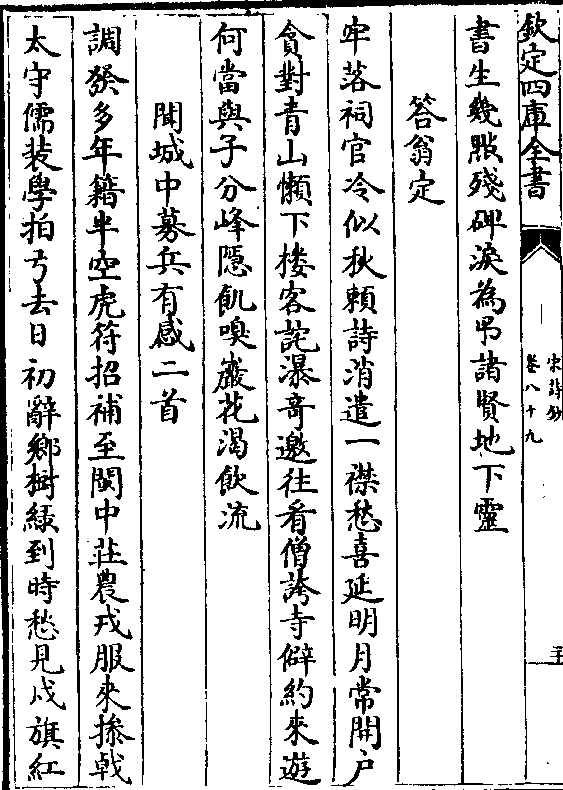 欽定四庫全書
宋詩鈔
卷八十九
書生幾㸃殘碑淚為弔諸賢地下靈
答翁定
牢落祠官冷似秋賴詩消遣一襟愁喜延明月常開户
貪對青山懶下楼客詫瀑竒邀往看僧誇寺僻約來遊
何當與子分峰隱飢嗅巖花渴飲流
聞城中募兵有感二首
調發多年籍半空虎符招補至閩中莊農戎服來操戟
太守儒裝學拍弓去日初辭鄉樹緑到時愁見戍旗紅